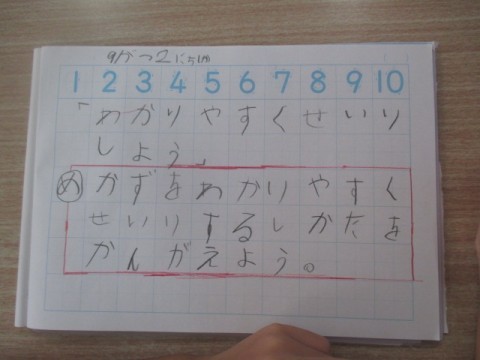 9がつ2にち
1 2 3 4 5 6 7 8 9 10
「わかりやすくせいり
しよう」
め かずをわかりやすく
せいりするしかたを
かんがえよう。